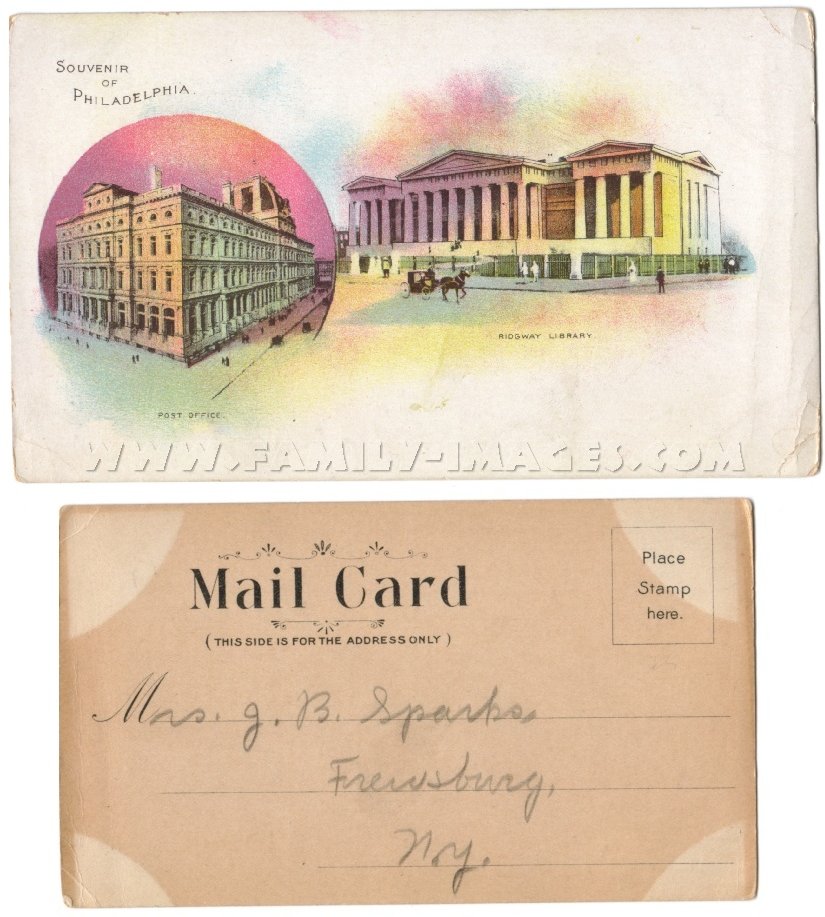 SOUVENIR
OF
PHILADELPHIA.
RIDGWAY LIBRARY.
POST OFFICE.
WWW.FAMILY-IMAGES.COM
Mail Card
(THIS SIDE IS FOR THE ADDRESS ONLY)
Place
Stamp
here.
Mrs. J. B. Sparks,
Frewsburg,
N.y.